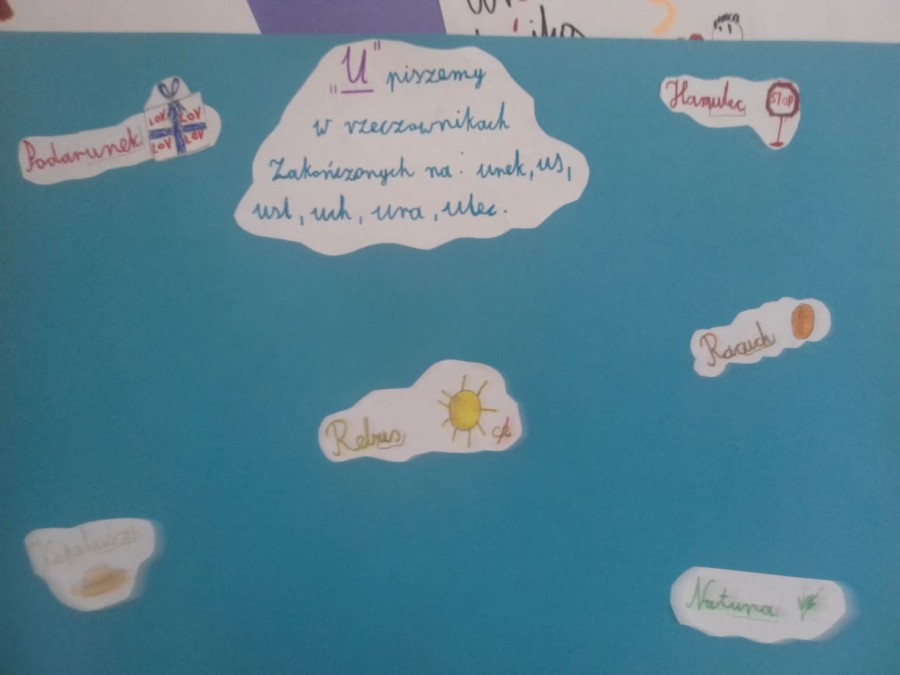 „U” piszemy
w rzeczownikach
Zakończonych na: unek, us,
usz, uch, ura, ulec.
Podarunek
LOV LOV
LOV LOV
Hamulec
STOP
Racuch
Rebus
Kapelusz
Natura